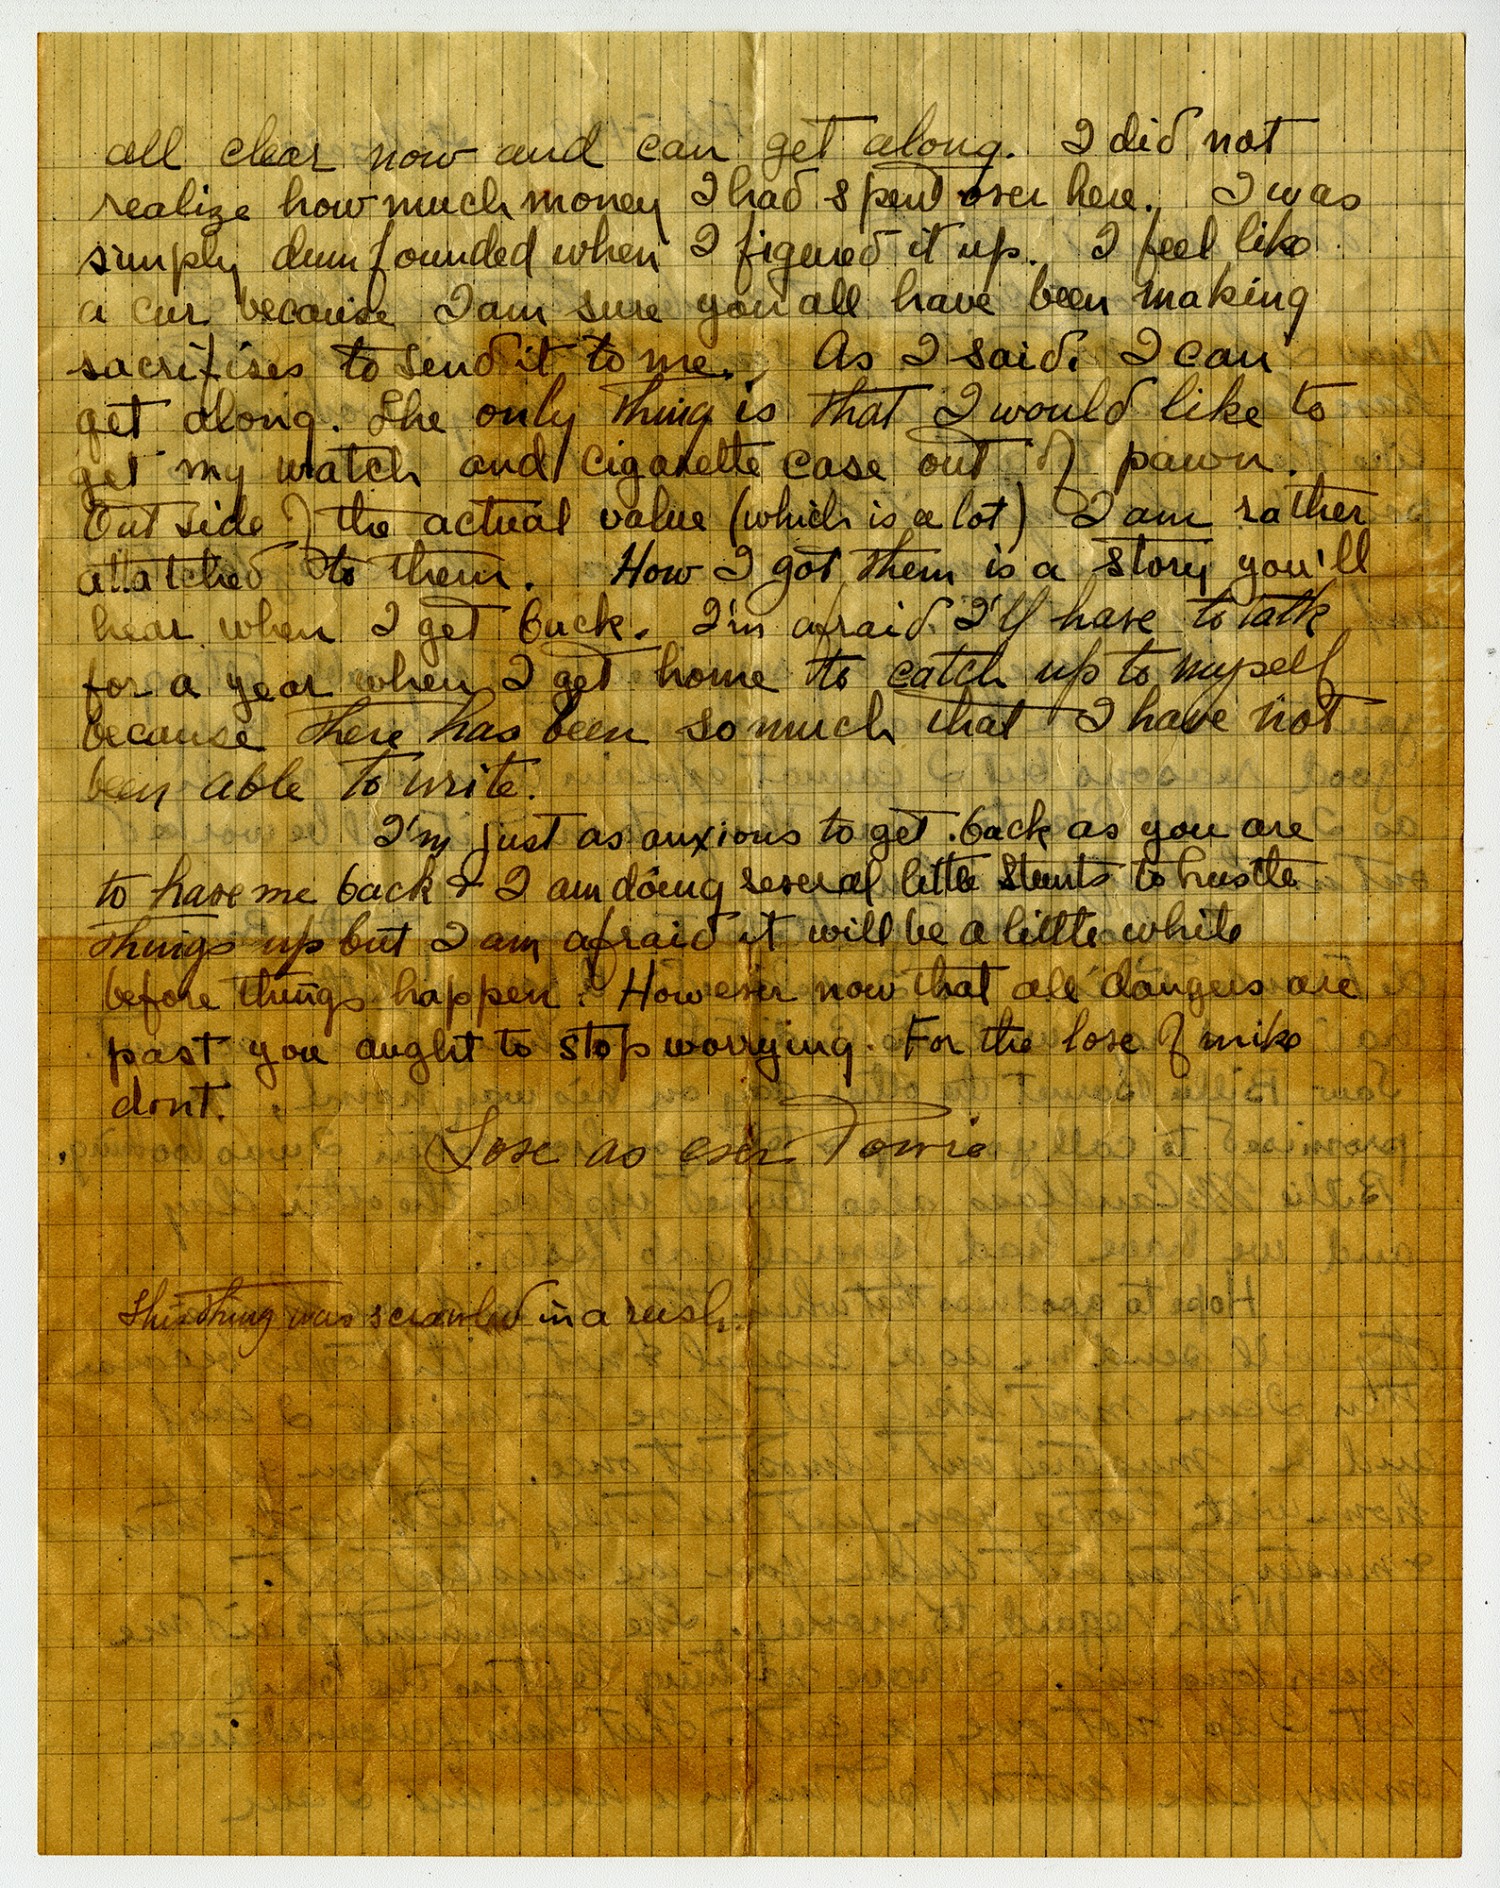 all clear now and can get along. I did not
realize how much money I had spent over here. I was
simply dumfounded when I figured it up. I feel like
a cur because I am sure you all have been making
sacrifises to send it to me. As I said I can
get along. The only thing is that I would like to
get my watch and cigarette case out of pawn.
Outside of the actual value (which is a lot) I am rather
attatched to them. How I got them is a story you'll
hear when I get back. I'm afraid I'll have to talk
for a year when I get home to catch up to myself
because there has been so much that I have not
been able to write.
I'm just as anxious to get back as you are
to have me back & I am doing several little stunts to hustle
things up but I am afraid it will be a little while
before things happen. However now that all dangers are
past you aught to stop worrying. For the love of mike
dont.
Love as ever
This thing was scrawled in a rush.